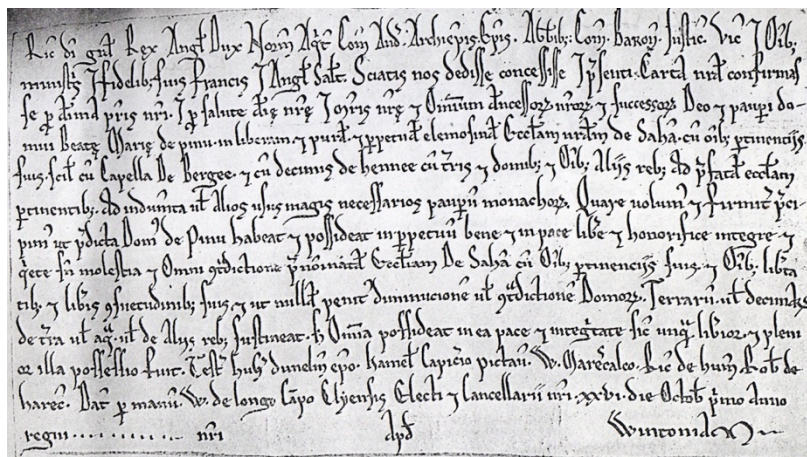 Ric di gra Rex Angl Dux Norm Aqt Com And. Archiepis. Epis. Abbib; Com. Baron. Justic. Vic ⁊ Oib;
ministris ⁊ fidelib; suis Francis ⁊ Angl Salt. Sciatis nos dedisse concessisse ⁊ psenti Carta nra confirmas
se p anima pris nri. ⁊ p salute ⁊ mris nre ⁊ Omnium Ancessor nror ⁊ successor Deo ⁊ paupi do
mui Beate Marie de pinu in liberam ⁊ pura ⁊ ppetua elemosina Eccliam nram de Saha cu oib; ptinenciis
suis. scil cu Capella De Bergee. ⁊ cu decimis de hennee cu tris ⁊ domib; ⁊ Oib; Aliis reb; Ad pfata eccliam
ptinentib; Ad indumta ul Alios usus magis necessarios paupu monachor. Quare volum ⁊ firmit pci
pim ut pdicta Dom de Pinu habeat ⁊ possideat in ppetuu bene ⁊ in pace libe ⁊ honorifice integre ⁊
qete sn molestia ⁊ Omni 9tdictione pnominata Eccliam De Saha cu Oib; ptinenciis suis ⁊ Oib; libta
tib; ⁊ libis 9suetudinib; suis ⁊ ut nulla penit diminucione ul 9tdictione Domor. Terraru ul decimar
de tra ul aq. ul de Aliis reb; sustineat. s Omia possideat in ea pace ⁊ integtate sic unq libior ⁊ pleni
or illa possessio fuit. Test hug dunelm epo. Pictau. W. Marescalco. Ric de hum Rob de
harec. Dat p manu. W. de longo Capo Elyensis Electi ⁊ Cancellarii nri. xxvi. die Octob pmo anno
regni . . . . . . . . . . nri Apd Wintonia